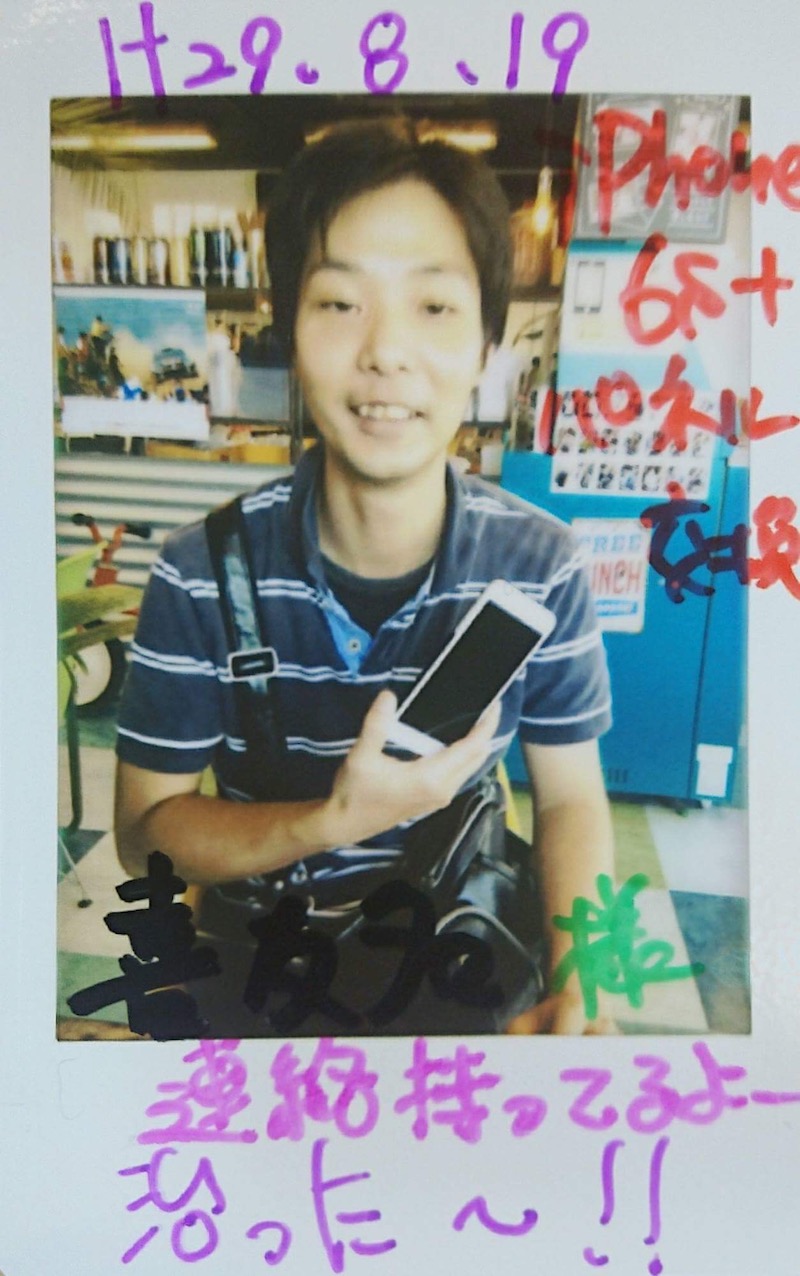 H29.8.19
iPhone
6s+
パネル
交換
FREE
LUNCH
喜友名 様
連絡待ってるよー
治った〜!!